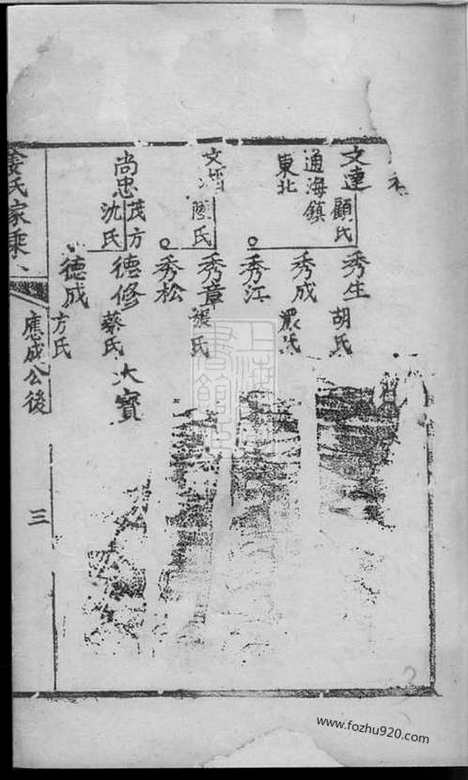 文達
顧氏
通海鎮
東北
秀生
胡氏
秀成
嚴氏
秀江
文
陳氏
秀章
張氏
秀松
尚忠
茂方
沈氏
德修
蔡氏
大寶
德成
方氏
氏家乘
應成公後
三
2
www.fozhu920.com